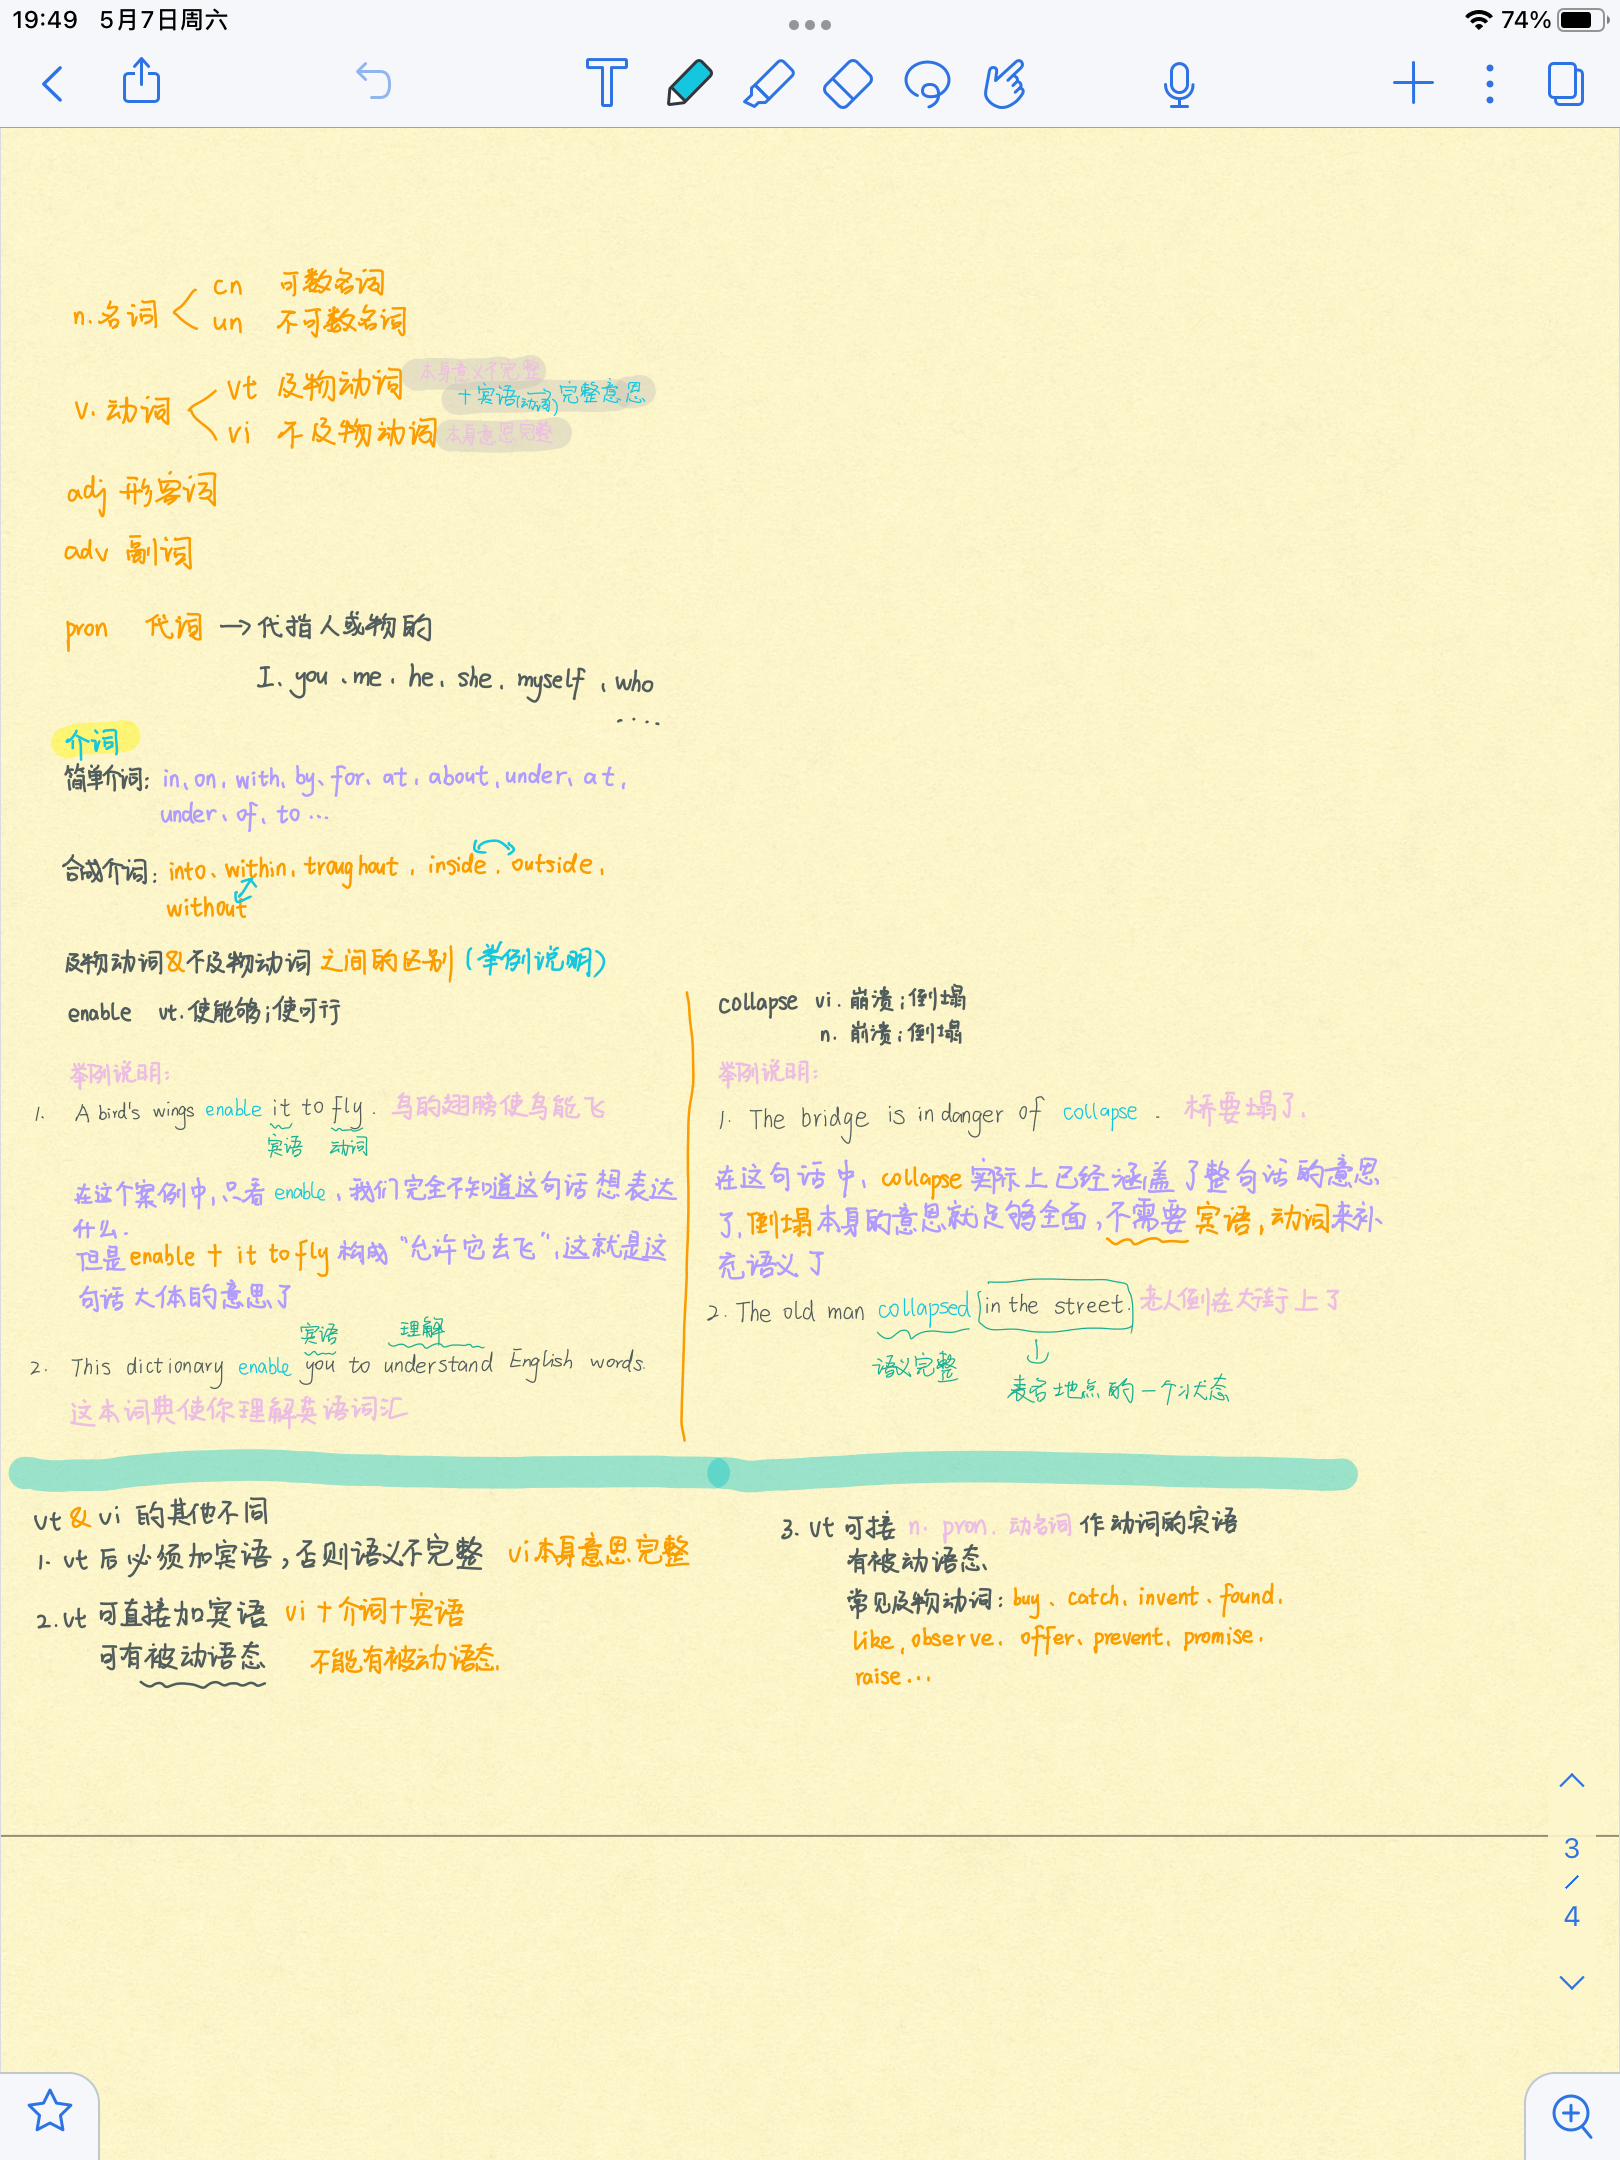 19:49 5月7日周六
74%
n.名词
cn 可数名词
un 不可数名词
v.动词
vt 及物动词 本身意义不完整
+宾语(动词)→完整意思
vi 不及物动词 本身意思完整
adj 形容词
adv 副词
pron 代词 →代指人或物的
I、you、me、he、she、myself、who
....
介词
简单介词: in、on、with、by、for、at、about、under、at、
under、of、to ...
合成介词: into、within、troughout、inside、outside、
without
及物动词&不及物动词 之间的区别 (举例说明)
enable vt.使能够;使可行
举例说明:
1. A bird's wings enable it to fly. 鸟的翅膀使鸟能飞
宾语 动词
在这个案例中,只看 enable,我们完全不知道这句话想表达
什么.
但是 enable + it to fly 构成“允许它去飞”,这就是这
句话大体的意思了
宾语 理解
2. This dictionary enable you to understand English words.
这本词典使你理解英语词汇
collapse vi. 崩溃;倒塌
n. 崩溃;倒塌
举例说明:
1. The bridge is in danger of collapse. 桥要塌了.
在这句话中, collapse 实际上已经涵盖了整句话的意思
了,倒塌本身的意思就足够全面,不需要宾语,动词来补
充语义了
2. The old man collapsed in the street. 老人倒在大街上了
语义完整
表名地点的一个状态
vt & vi 的其他不同
1. vt 后必须加宾语,否则语义不完整 vi本身意思完整
2. vt 可直接加宾语 vi+介词+宾语
可有被动语态 不能有被动语态.
3. vt 可接 n. pron. 动名词 作动词的宾语
有被动语态
常见及物动词: buy、catch、invent、found、
like、observe、offer、prevent、promise、
raise...
3
/
4